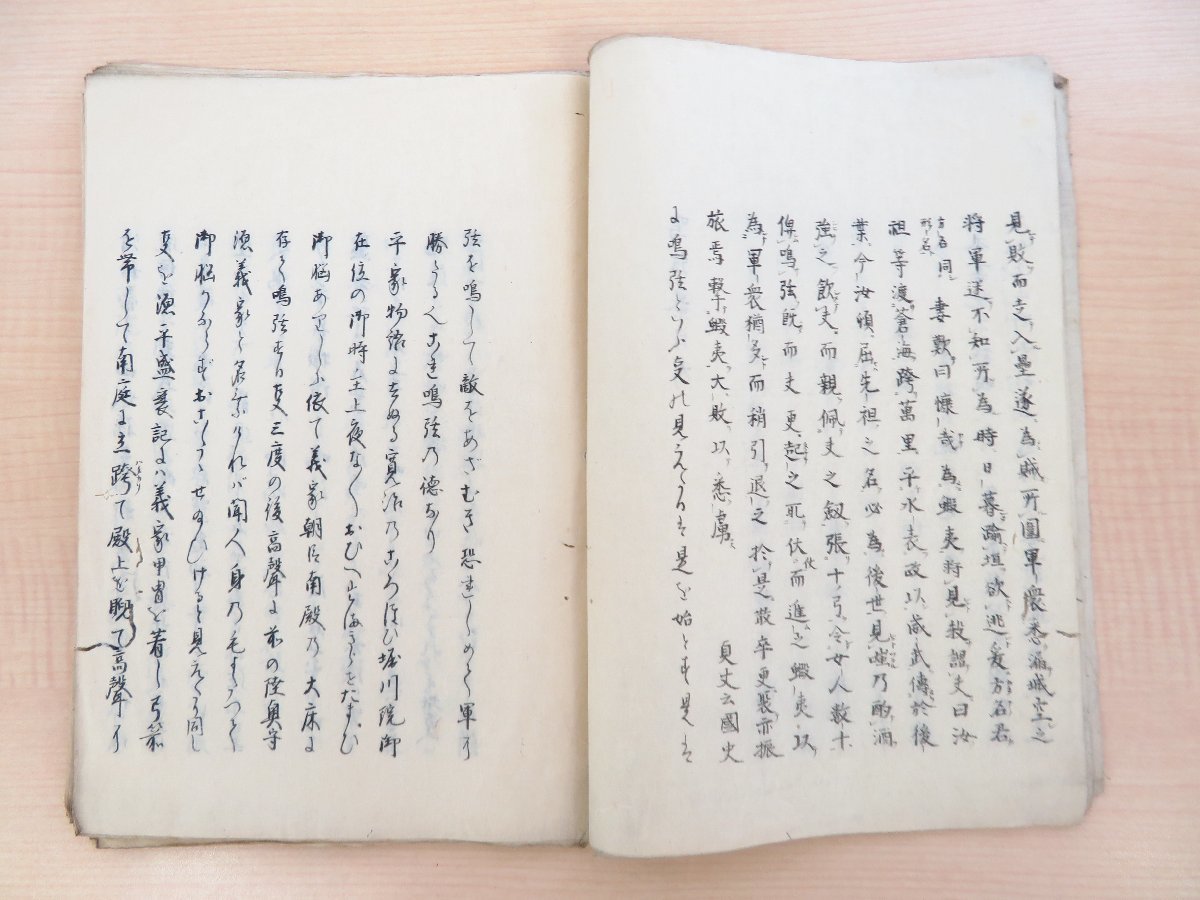 見敗而走入壘遂為賊所圍軍衆悉漏城空之
将軍迷不知所為時日暮踰垣欲逃爰方名君
方名同形名 妻歎曰慷哉為蝦夷将見殺謂夫曰汝
祖等渡蒼海跨萬里平水表政以威武傳於後
葉今汝頓屈先祖之名必為後世見嗤乃酌酒
強之飲夫而親佩夫之釼張十弓令女人数十
俾鳴弦既而夫更起之取伏仗而進之蝦夷以
為軍衆猶多而稍引退之於是散卒更聚亦振
旅焉撃蝦夷大敗以悉虜 貞丈云國史
に鳴弦といふ事の見えたるは是を始とす是は
弦を鳴らして敵をあざむき恐れしめて軍に
勝たるなりこれ鳴弦の徳なり
平家物語に
寛治のころほひ堀川院御
在位の御時主上夜な〳〵おびへ
御悩ありしに依て義家朝臣南殿の大床に
鳴弦する事三度の後高聲に前の陸奥守
源義家と名乗りければ聞人身の毛もよだつて
御悩
せ給ひけると見えたり同し
事を源平盛衰記には義家甲冑を着し弓箭
を帯して南庭に立跨て殿上を睨て高聲に